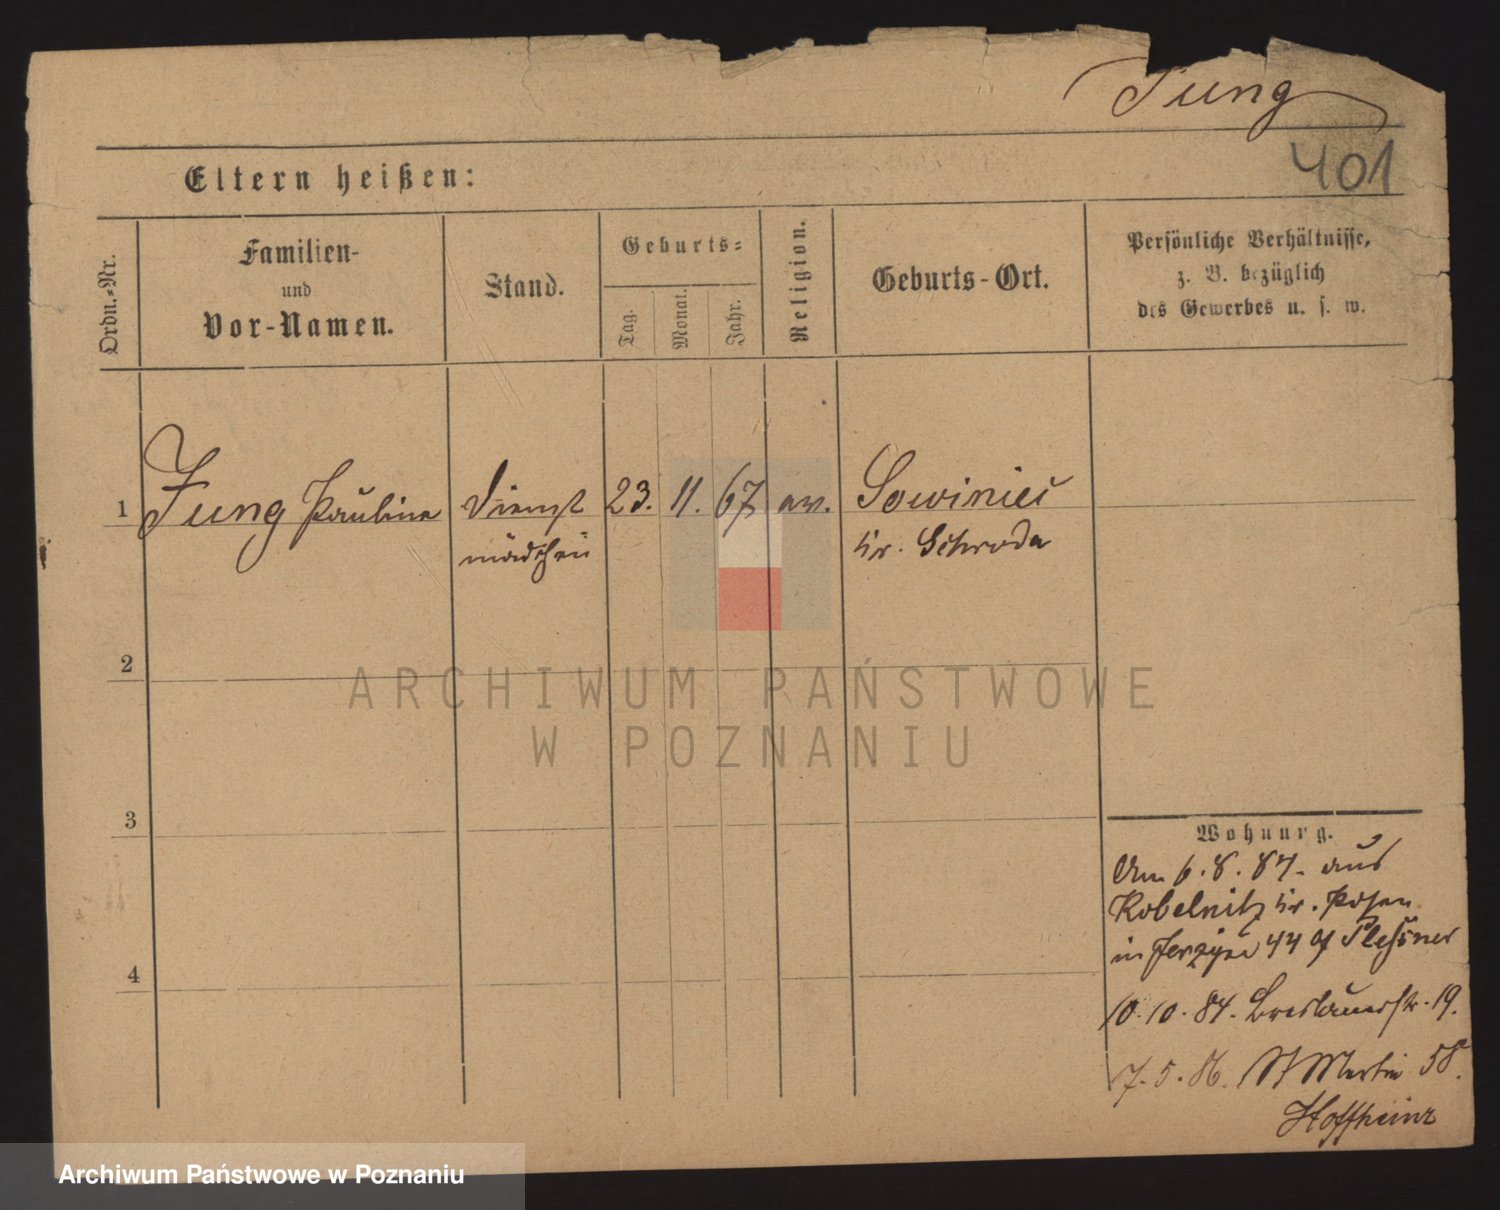 Jung
401
Eltern heißen:
Ordn.-Nr.
Familien-
und
Vor-Namen.
Stand.
Geburts-
Tag.
Monat.
Jahr.
Religion.
Geburts-Ort.
Persönliche Verhältnisse,
z. B. bezüglich
des Gewerbes u. s. w.
1 Jung Pauline Dienst 23. 11. 67 ev. Sowiniec
mädchen Kr. Schroda
2
3
4
Wohnung.
Am 6. 8. 84. aus
Kobelnitz Kr. Posen
in Jerzyce 44 Plessner
10. 10. 84. Breslauerstr. 19.
7. 5. 86. St Martin 58.
Hoffheinz
ARCHIWUM PAŃSTWOWE
W POZNANIU
Archiwum Państwowe w Poznaniu